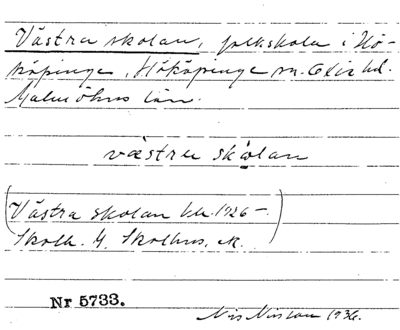 Västra skolan, folkskola i Hö-
köpinge, Hököpinge sn. Oxie hd.
Malmöhus län.
västra skolan
(Västra skolan bl. 1926 –)
Skolh. 4. Skolhus, ek.
Nr 5733.
Nils Nilsson 1936.